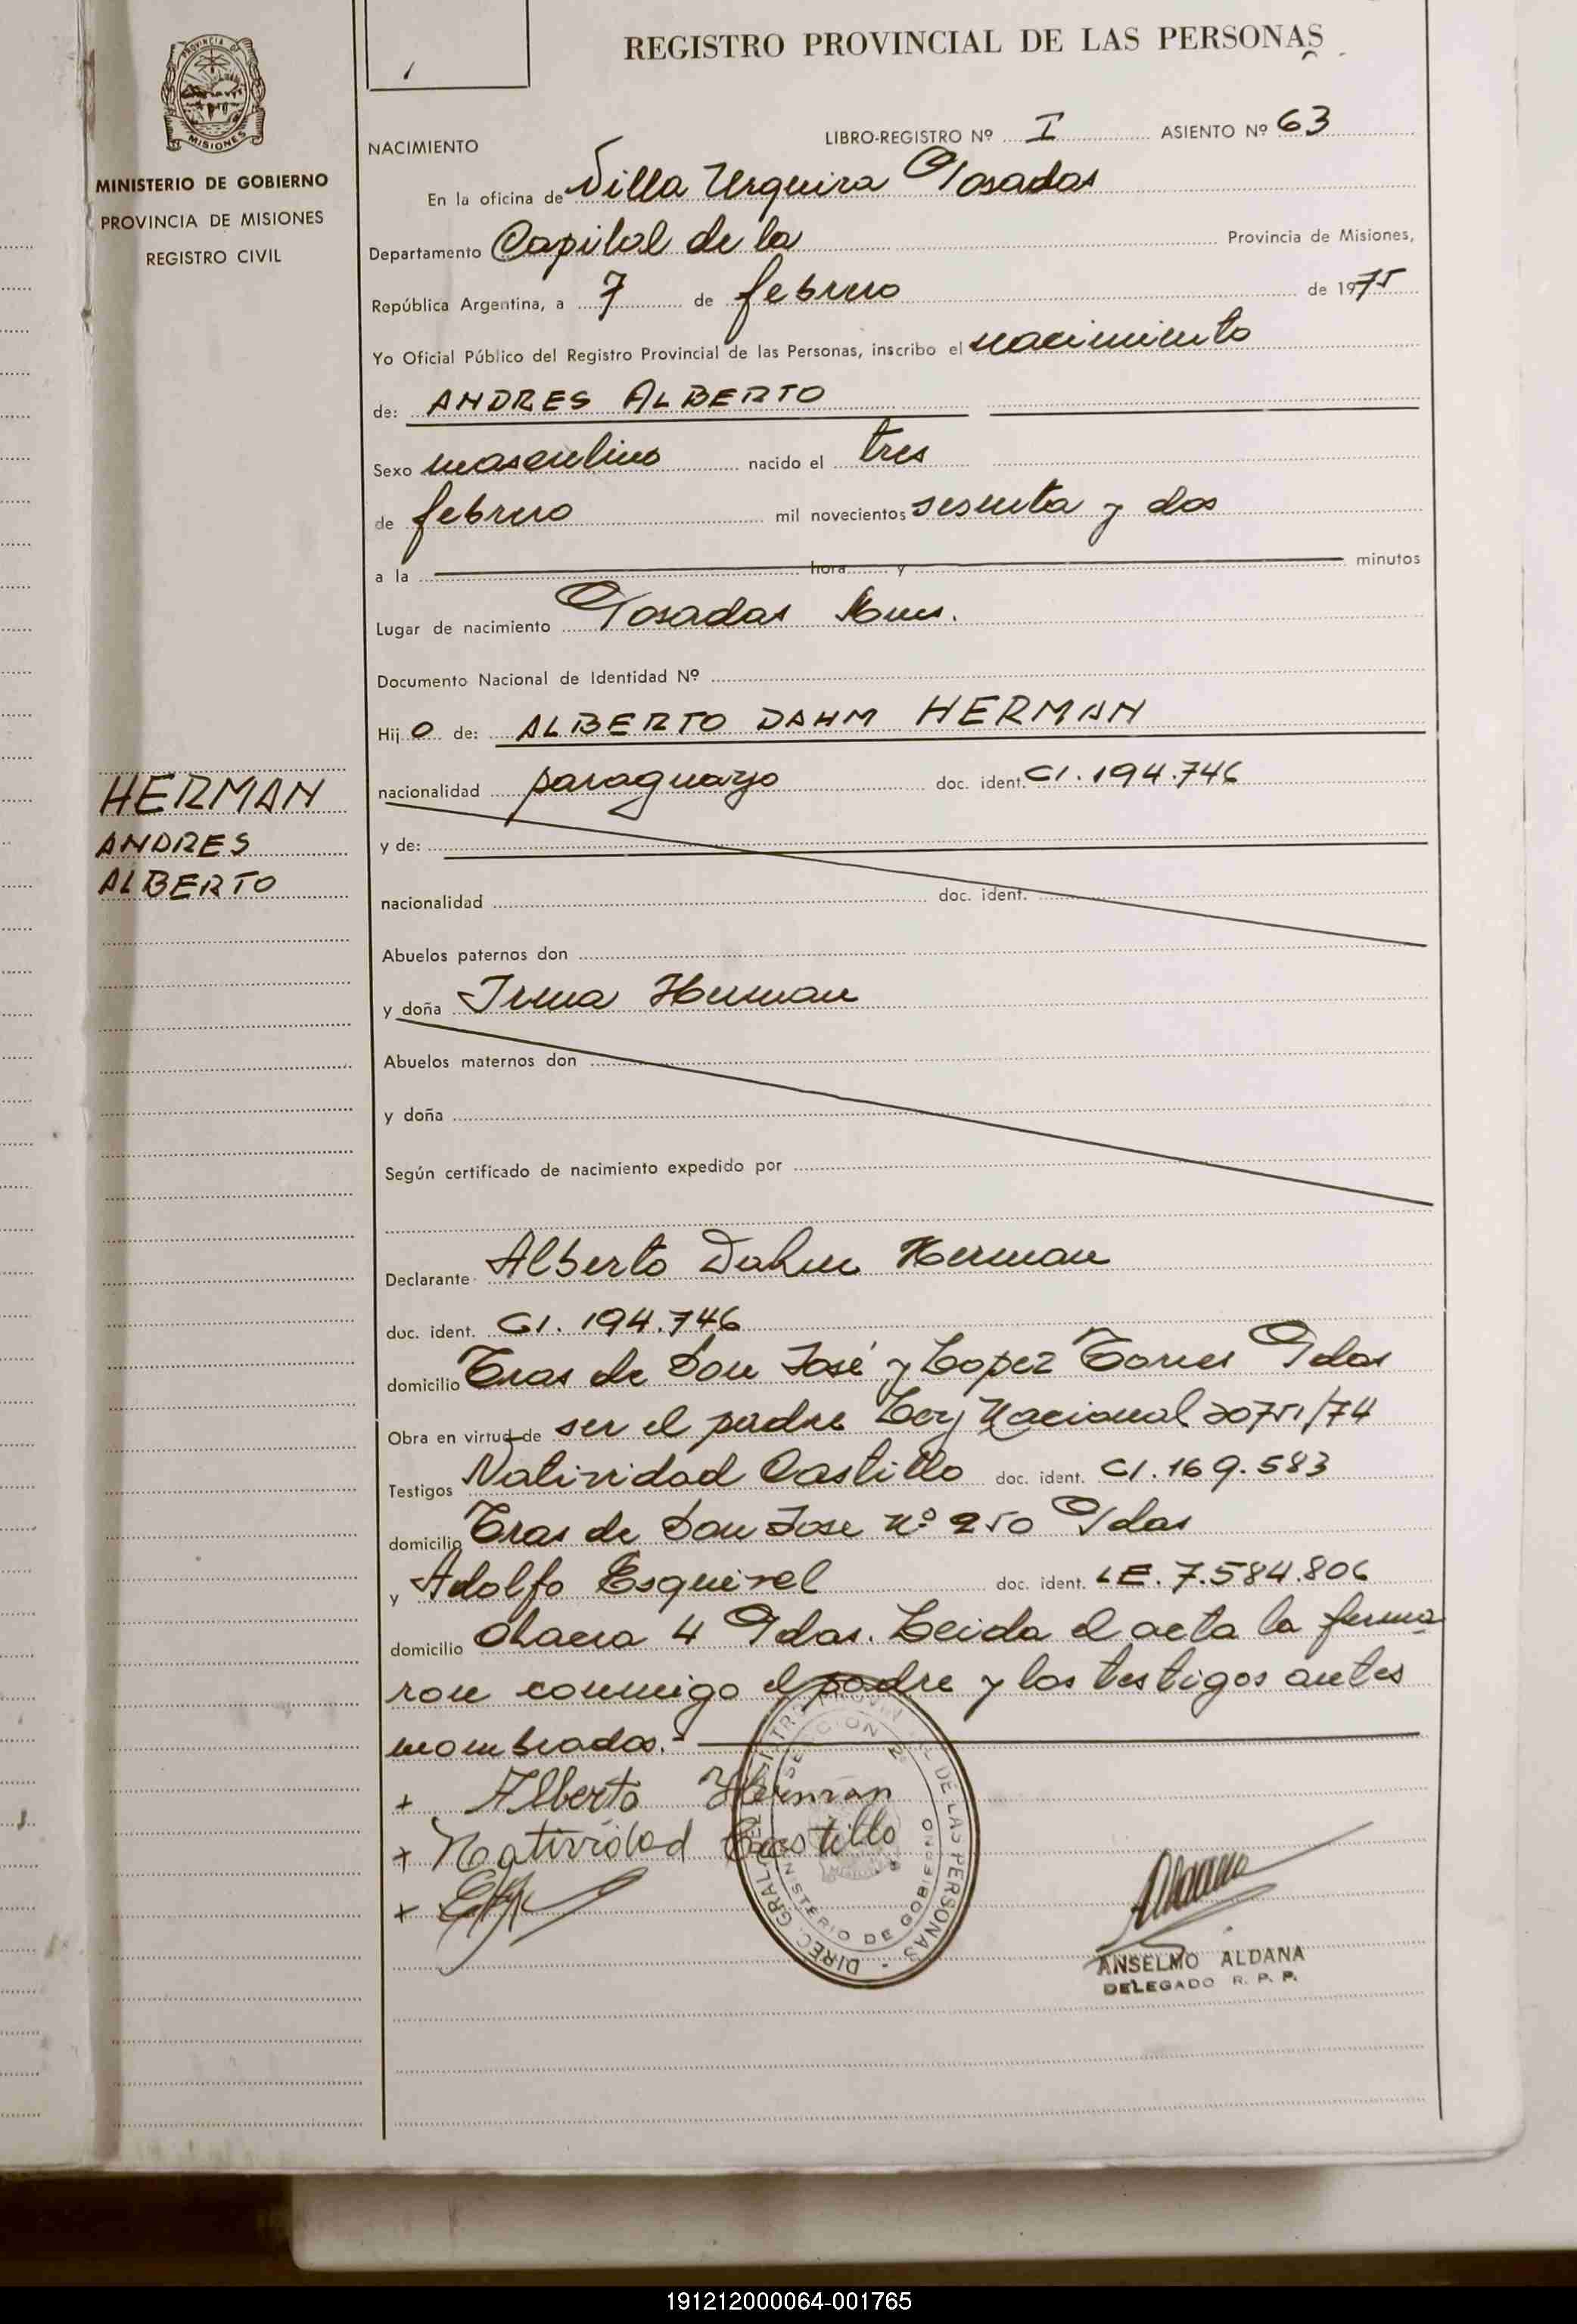 REGISTRO PROVINCIAL DE LAS PERSONAS
PROVINCIA DE MISIONES
MINISTERIO DE GOBIERNO
PROVINCIA DE MISIONES
REGISTRO CIVIL
NACIMIENTO
LIBRO-REGISTRO Nº I ASIENTO Nº 63
En la oficina de Villa Urquiza Posadas
Departamento Capital de la Provincia de Misiones,
República Argentina, a 7 de febrero de 1975
Yo Oficial Público del Registro Provincial de las Personas, inscribo el nacimiento
de: ANDRES ALBERTO
Sexo masculino nacido el tres
de febrero mil novecientos sesenta y dos
a la hora y minutos
Lugar de nacimiento Posadas Mnes.
Documento Nacional de Identidad Nº
Hij o de: ALBERTO DAHM HERMAN
HERMAN
ANDRES
ALBERTO
nacionalidad paraguayo doc. ident. CI. 194.746
y de:
nacionalidad doc. ident.
Abuelos paternos don
y doña Irma Herman
Abuelos maternos don
y doña
Según certificado de nacimiento expedido por
Declarante Alberto Dahm Herman
doc. ident. CI. 194.746
domicilio Tras de Don José y Lopez Torres Pdas
Obra en virtud de ser el padre Ley Nacional 20751/74
Testigos Natividad Castillo doc. ident. CI. 169.583
domicilio Tras de Don Jose nº 250 Pdas
y Adolfo Esquivel doc. ident. LE. 7.584.806
domicilio Chacra 4 Pdas. Leida el acta la firma
ron conmigo el padre y los testigos antes
mombrados.-
+ Alberto Herman
+ Natividad Castillo
+
DIREC. GRAL. DE LAS PERSONAS
MINISTERIO DE GOBIERNO
Aldana
ANSELMO ALDANA
DELEGADO R. P. P.
191212000064-001765